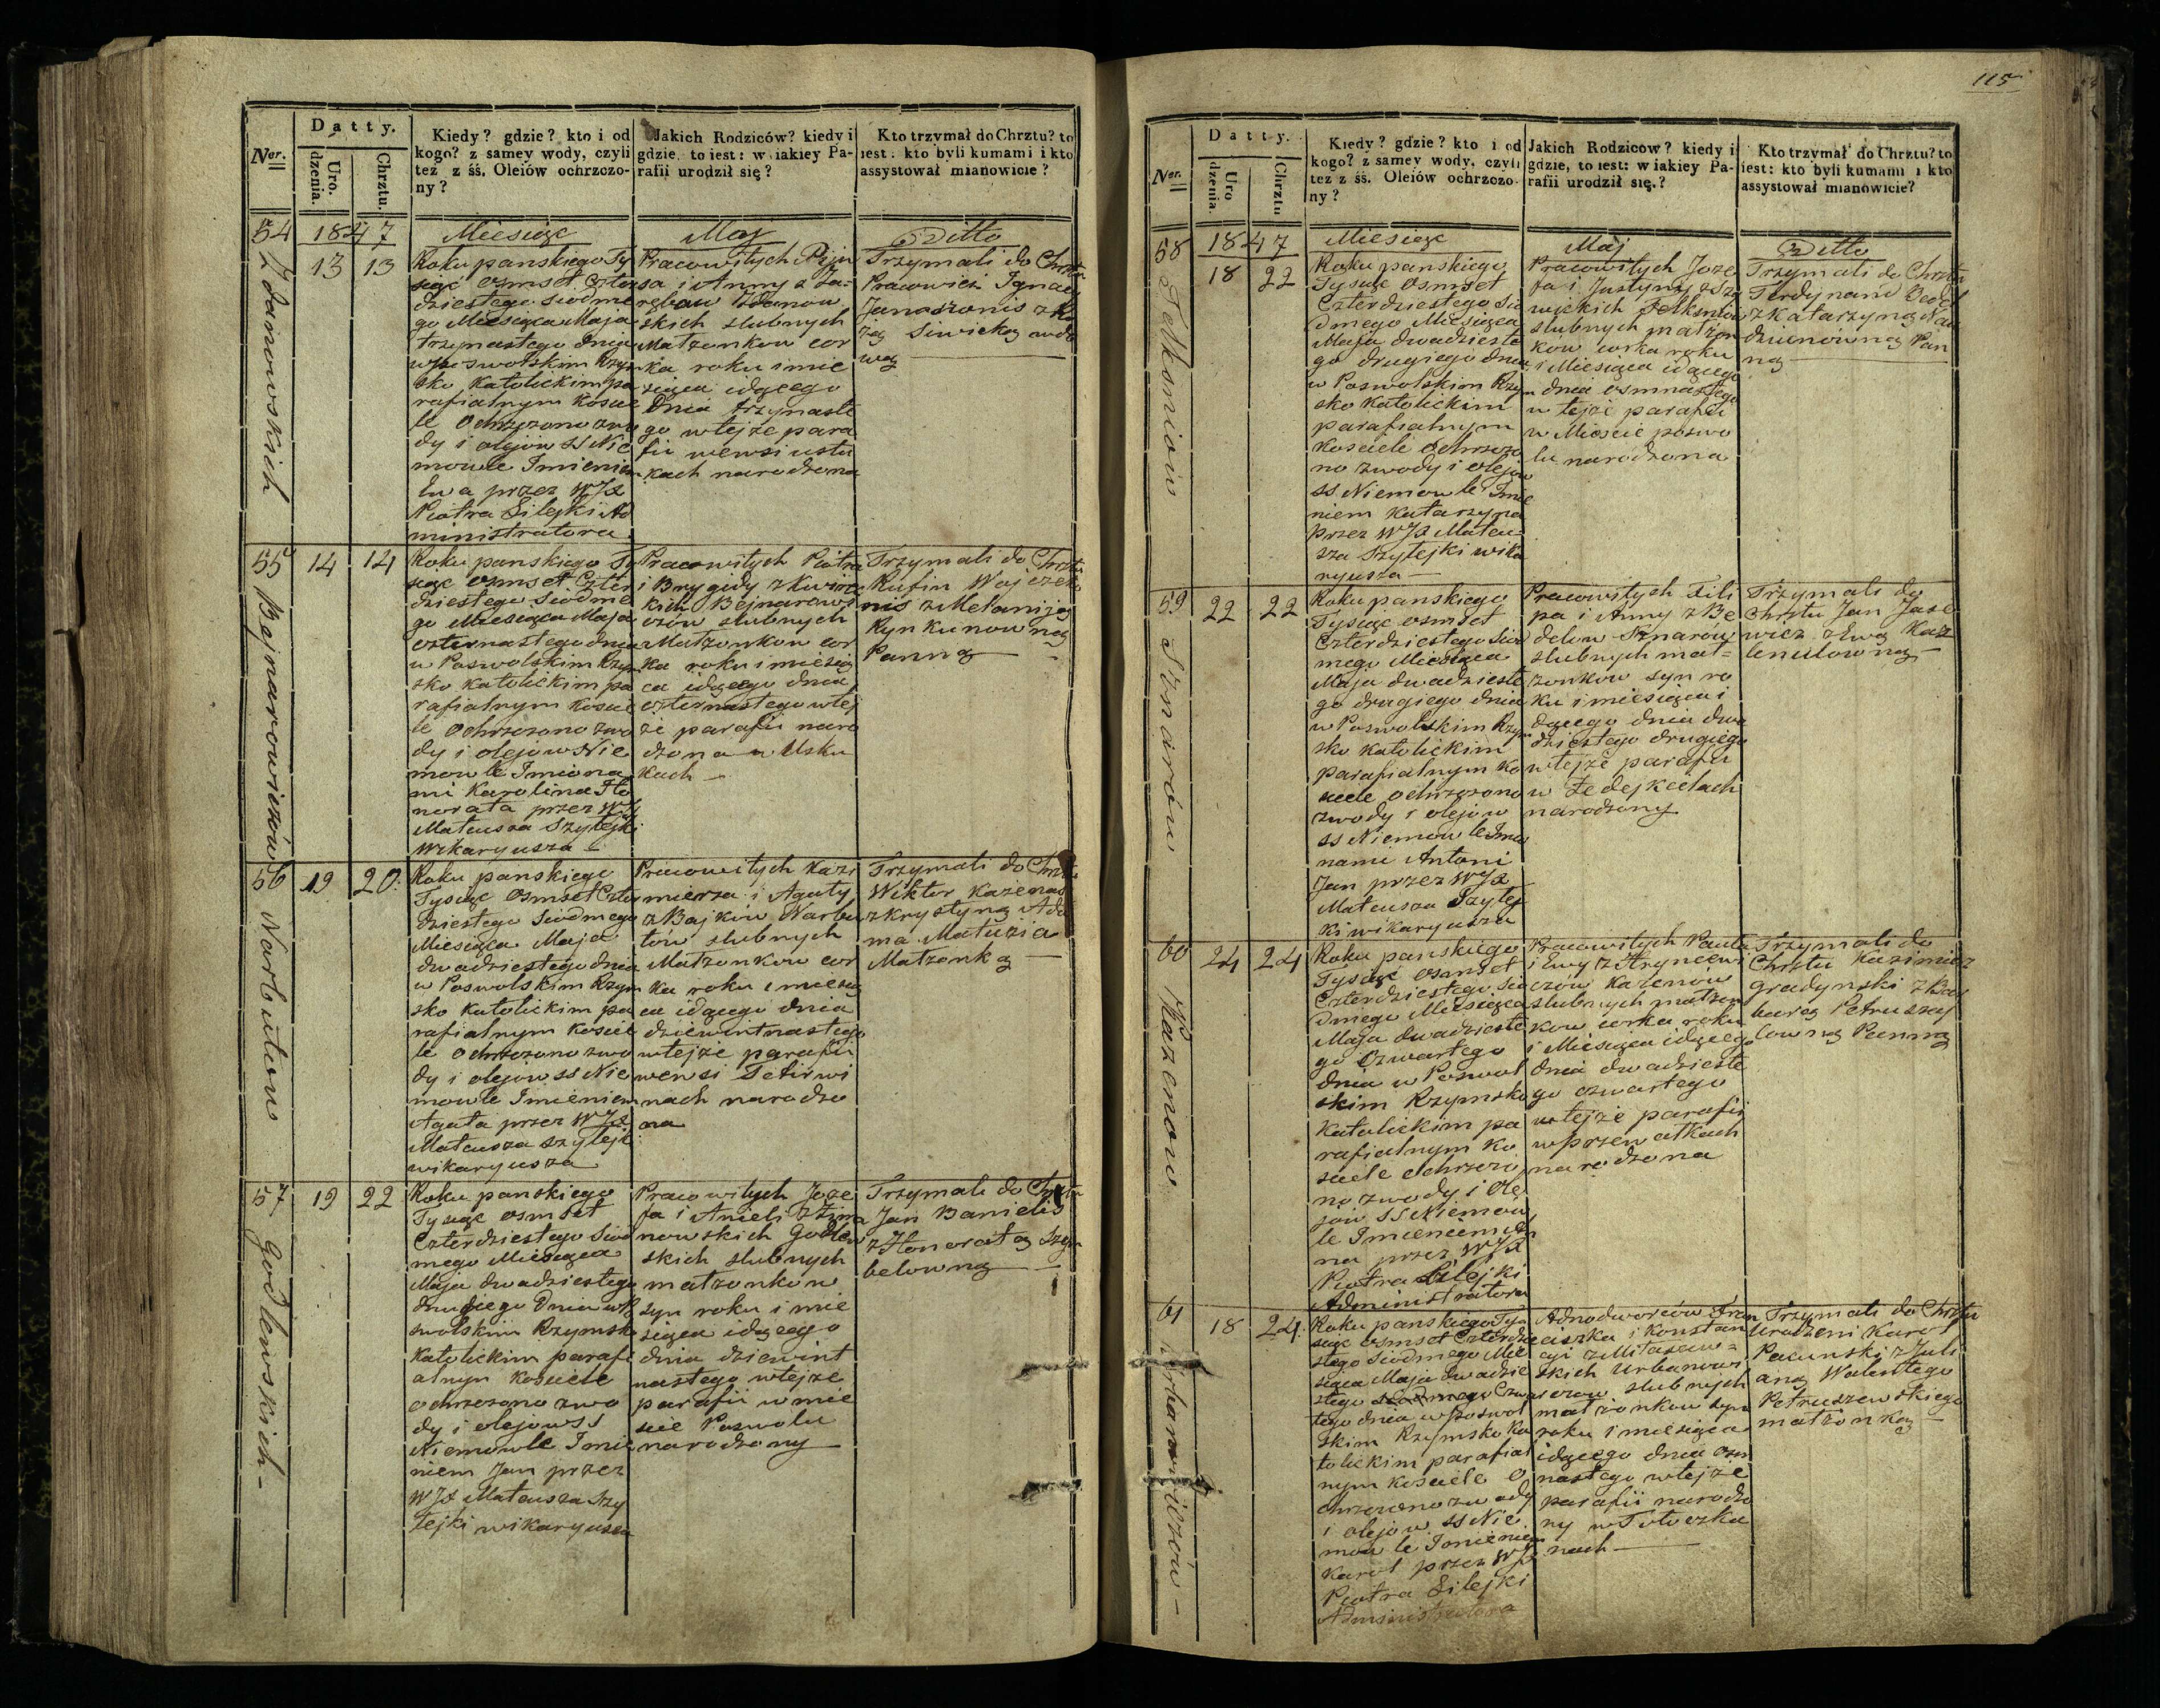 115
Datty.
Ner.
Uro. dzenia.
Chrztu.
Kiedy? gdzie? kto i od
kogo? z samey wody, czyli
tez z śś. Oleiów ochrzczo-
ny?
Jakich Rodziców? kiedy i
gdzie, to iest: w iakiey Pa-
rafii urodził się?
Kto trzymał do Chrztu? to
iest: kto byli kumami i kto
assystował mianowicie?
54
1847
Miesiąc
Maj
Ditto
Zdanowskich
13 13
Roku panskiego Ty
siąc osmset Czter
dziestego siodme
go Miesiąca Maja
trzynastego dnia
w Poswolskim Rzym
sko Katolickim pa
rafialnym Kosciе
le Ochrzczono zwo
dy i olejow SS Nie
mowle Imieniem
Ewa przez WJX
Piotra Lilejki Ad
ministratora
Pracowitych
sa i Anny z Ja-
rębow Zdanow
skich slubnych
Matzonkow cor
ka roku i mie
siąca idącego
Dnia trzynaste
go w tejze para
fii we wsi ustu
kach narodzona
Trzymali do Chrztu
Pracowici Ignacy
Janaszonis z Ro
żą Siwicką wdo
wą
55 14 14
Bejnarowiczów
Roku panskiego Ty
siąc osmset Czter
dziestego Siodme
go Miesiąca Maja
czternastego dnia
w Poswolskim Rzym
sko Katolickim pa
rafialnym Koscie
le Ochrzczono zwo
dy i olejow Nie
mowle Imiona
mi Karolina Ho
norata przez WJX
Mateusza Szylejki
Wikaryusza
Pracowitych Piotra
i Brygidy z Kwiec
kich Bejnarowi
czów slubnych
Matzonkow cor
ka roku i miesią
ca idącego dnia
czternastego w tej
że parafii naro
dzona w Usku
kach
Trzymali do Chrztu
Rufin Wajczek
nis z Melaniją
Rynkunowną
Panną
56 19 20
Narbutow
Roku panskiego
Tysiąc Osmset Czter
dziestego Siodmego
Miesiąca Maja
dwadziestego dnia
w Poswolskim Rzym
sko Katolickim pa
rafialnym Koscie
le Ochrzczono zwo
dy i olejow SS Nie
mowle Imieniem
Agata przez WJX
Mateusza Szylejk
wikaryusza
Pracowitych Kazi
mierza i Agaty
z Bajkow Narbu
tów slubnych
Matzonkow cor
ka roku i miesią
ca idącego dnia
dziewintnastego
w tejże parafii
we wsi Tetirwi
nach narodzo
na
Trzymali do Chrztu
Wiktor Każenas
z Krystyną Ada
ma Matuzia
Matzonką
57 19 22
Godlewskich
Roku panskiego
Tysiąc osmset
Czterdziestego Siod
mego Miesiąca
Maja dwadziestego
drugiego Dnia w Po
swolskim Rzymsko
Katolickim parafi
alnym Kosciele
ochrzczono zwo
dy i olejow SS
Niemowle Imie
niem Jan przez
WJX Mateusza Szy
lejki wikaryusza
Pracowitych Joze
fa i Anieli z
nowskich Godlew
skich slubnych
matzonków
syn roku i mie
siąca idącego
dnia dziewint
nastego w tejze
parafii w mie
scie Poswolu
narodzony
Trzymali do Chrztu
Jan Banielis
z Honoratą Szym
belowną
Datty.
Ner.
Uro dzenia.
Chrztu
Kiedy? gdzie? kto i od
kogo? z samey wody, czyli
tez z śś. Oleiów ochrzczo-
ny?
Jakich Rodziców? kiedy i
gdzie, to iest: w iakiey Pa-
rafii urodził się.?
Kto trzymał do Chrztu? to
iest: kto byli kumami i kto
assystował mianowicie?
58
1847
Miesiąc
Maj
Ditto
Felksniow
18 22
Roku panskiego
Tysiąc Osmset
Czterdziestego Sio
dmego Miesiąca
Maja dwadzieste
go drugiego dnia
w Poswolskim Rzym
sko Katolickim
parafialnym
Kosciele Ochrzczo
no zwody i olejow
SS Niemowle Imie
niem Katarzyna
przez WJX Mateu
sza Szylejki wika
ryusza
Pracowitych Joze
fa i Justyny z Szy
wickich Felksniow
slubnych matzon
ków corka roku
i Miesiąca idącego
dnia osmnastego
w tejże parafii
w Miescie poswo
lu narodzona
Trzymali do Chrztu
Ferdynand
z Katarzyną Na
dziunówną Pan
ną
59 22 22
Sznarów
Roku panskiego
Tysiąc osmset
Czterdziestego Siod
mego Miesiąca
Maja dwadzieste
go drugiego dnia
w Poswolskim Rzym
sko Katolickim
parafialnym Ko
sciele ochrzczono
zwody i olejow
SS Niemowle Imio
nami Antoni
Jan przez WJX
Mateusza Szylej
ki wikaryusza
Pracowitych Fili
pa i Anny z Be
delow Sznarów
slubnych mat-
zonkow syn ro
ku i miesiąca i
dącego dnia dwa
dziestego drugiego
w tejże parafii
w Żedejkielach
narodzony
Trzymali do
Chrztu Jan Jase
wicz z Ewą Kaz
lenulowną
60 24 24
Każenow
Roku panskiego
Tysiąc osmset
Czterdziestego Sio
dmego Miesiąca
Maja dwadzieste
go Czwartego
dnia w Poswol
skim Rzymsko
Katolickim pa
rafialnym Ko
sciele ochrzczo
no zwody i Ole
jow SS Niemow
le Imieniem An
na przez WJX
Piotra Lilejki
Administratora
Pracowitych Pawła
i Ewy z Hryncewi
czów Każenów
slubnych matzon
kow corka roku
i Miesiąca idącego
dnia dwadzieste
go czwartego
w tejże parafii
w przewałkach
narodzona
Trzymali do
Chrztu Kazimierz
Gradynski z Bar
barą Petruszay
lowną Panną
61 18 24
Urbanowiczów
Roku panskiego Ty
siąc osmset Czterdzie
stego Siodmego Mie
siąca Maja dwadzie
stego Siodmego Czwar
tego dnia w Poswol
skim Rzymsko Ka
tolickim parafial
nym Kosciele O
chrzczono zwody
i olejow SS Nie
mowle Imieniem
Karol przez WJX
Piotra Lilejki
Administratora
Adnodworców Fran
ciszka i Konstan
cyi z Milaszew-
skich Urbanowi
czow slubnych
matzonkow syn
roku i miesiąca
idącego dnia osm
nastego w tejze
parafii narodzo
ny w Totoczka
nach
Trzymali do Chrztu
Urodzeni Karol
Pacunski z Juli
aną Walentego
Petruszewskiego
matzonką